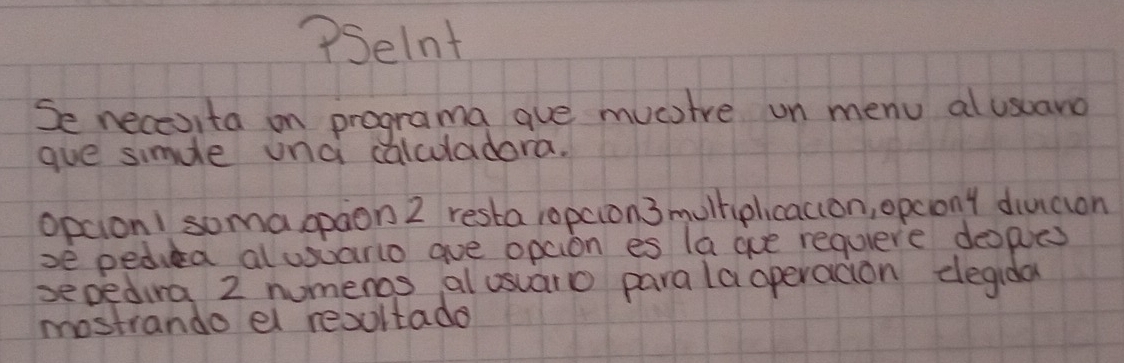 PSeInt
Se necesita un programa que muestre un menu al usuario
que simule una calculadora.
opcion 1 suma opcion 2 resta, opcion 3 multiplicacion, opcion 4 divicion
se pedira al usuario que opción es la que requiere despues
se pedira 2 numeros al usuario para la operacion elegida
mostrando el resultado